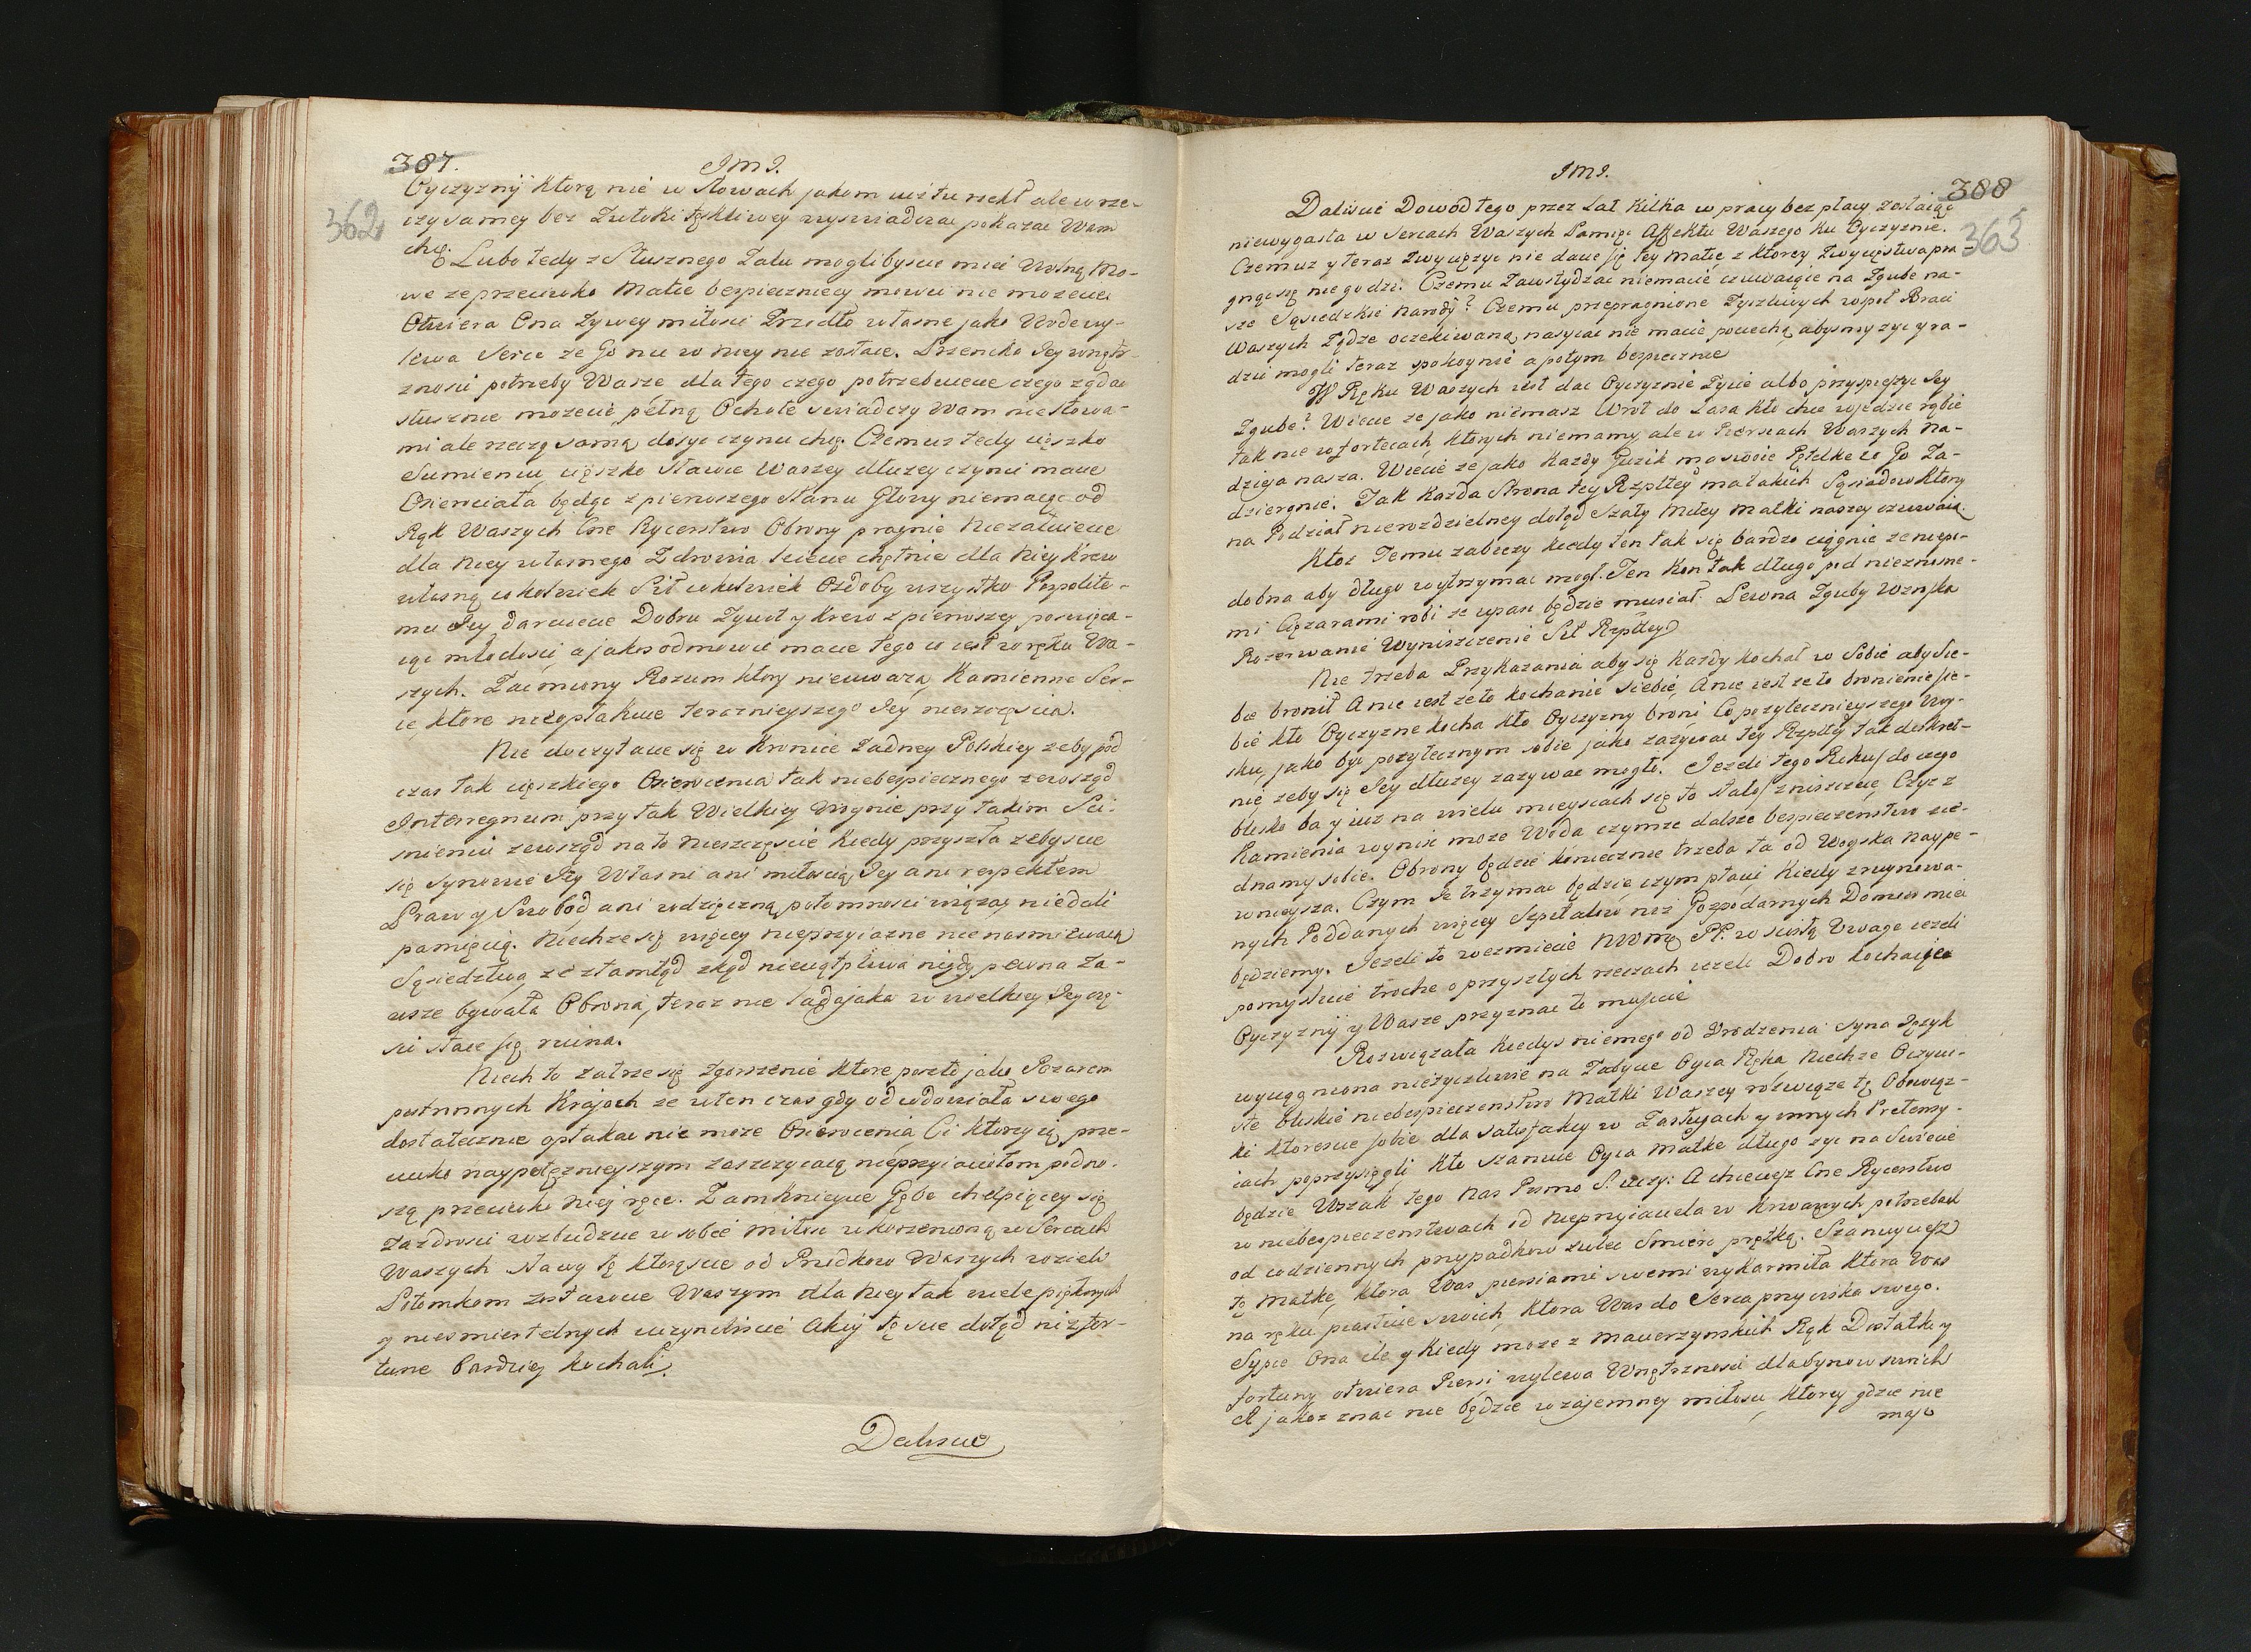 387.
J M J.
362
Oyczyznÿ którą nie w słowach jakom iuż tu rzekł ale w rze-
czy samey bez Zwłoki tęskliwey wyświadczać pokazać Wam
chcę.
Lubo tedy z Słusznego Żalu moglibyście mieć Wolną Mo-
wę że przeciwko Matce bespieczniey mówić nie możecie
Otwiera Ona Żywey miłości Źrzodło własne jako Wode wy-
lewa Serce że Go nic w niey nie zostaie. Przenika Jey wnętr-
zności potrzeby Wasze dla tego czego potrzebuiecie czego żądać
słusznie możecie pełną Ochote świadczy Wam nie słowa-
mi ale rzeczą samą dosyć czynić chcę. Czemuż tedy ciężko
Sumieniu ciężko Sławie Waszey dłużey czynić macie
Osierociała będąc z pierwszego Stanu Głowy niemaiąc od
Rąk Waszych Cne Rycerstwo Obrony pragnie Nieżałuiecie
dla niey własnego Zdrowia leiecie chętnie dla Niey Krew
własną cokolwiek Sił cokolwiek Ozdoby wszystko Pospolite-
mu Jey daruiecie Dobru Żywot y Krew z pierwszey poswięca-
iąc młodości a jakoż odmówić macie tego co iest w ręku Wa-
szych. Zaćmiony Rozum który nieuważa, Kamienne Ser-
ce które nieopłakuie terazniejszego Jey nieszczęścia.
Nie doczytacie się w Kronice żadney Polskiey żeby pod
czas tak cięszkiego Osierocenia tak niebespiecznego zewsząd
Interregnum przy tak Wielkiey Woynie przy takim Ści-
snieniu zewsząd na to Nieszczęście Kiedy przyszła żebyście
się Synowie Jey Właśni ani miłością Jey ani respektem
Praw y Swobod ani wdzięczną potomności wiązać niedali
pamięcią. Niechże się więcey nieprzyiazne nie nasmiewaią
Sąsiedztwa że ztamtąd zkąd niewątpliwa nigdy pewna za-
wsze bywała Obrona, teraz nie lada jaka w wielkiey Jey czę-
ści staie się ruina.
Niech to zatrze się Zgorszenie które poszło jako Pożarem
postronnych Krajach że wten czas gdy odwdowiała swego
dostatecznie opłakać nie może Osierocenia Ci którzy ią prze-
ciwko naypotężnieyszym zaszczycaią nieprzyiaciołom podno-
szą przeciwko Niey ręce. Zamkniycie Gębe chełpiącey się
zazdrości wzbudźcie w sobie miłość wkorzenioną w Sercach
Waszych Sławy tę którąście od Przodków Waszych wzieli
Potomkom zostawcie Waszym dla Niey tak wiele pięknych
y niesmiertelnych uczyniliście Akcÿ tęście dotąd niż for-
tune bardziey kochali.
Daliście
J M J.
388
363
Daliście Dowód tego przez Lat Kilka w pracy bez płacy zostaiąc
niewygasła w Sercach Waszych Pamięć Affektu Waszego Ku Oyczyznie.
Czemuż y teraz Zwyciężyć nie dacie się tey Matce z którey Zwycięstwa pra-
gnąć się nie godzi. Czemu Zawstydzać niemacie czuwaiące na Zgube na-
sze Sąsiedzkie Narody? Czemu przepragnione Życzliwych wspoł Braci
Waszych Żądze oczekiwaną nasycać nie macie pociechą abysmy żyć y ra-
dzić mogli teraz spokoynie a potym bezpiecznie
W Ręku Waszych iest dać Oyczyznie Życie albo przyspieszyć Jey
Zgube? Wiecie że jako niemasz Wrot do Lasa kto chce wjedzie rąbie
tak nie w fortecach, których niemamy, ale w Piersiach Waszych na-
dzieja nasza. Wiecie że jako Każdy Guzik ma swoie Pętelke co Go Za-
dziergnie. Tak Każda Strona tey Rzpltey ma takich Sąsiadow którzy
na Podział nierozdzielney dotąd Szaty Miłey Matki naszey czuwaią.
Ktoż Temu zabieży kiedy ten tak się bardzo ciągnie że niepo-
dobna aby długo wytrzymać mogł. Ten Kon tak długo pod nieznosne-
mi Ciężarami robi że upaść będzie musiał. Pewna Zguby Woyska
Rozerwanie Wyniszczenie Sił Rzpltey
Nie trzeba Przykazania aby się Każdy Kochał w Sobie aby Sie-
bie bronił A nie iest że to kochanie siebie, A nie iest że to bronienie sie-
bie kto Oyczyzne kocha kto Oyczyzny broni Co pożytecznieyszego Woy-
sku, jako być pożytecznym sobie jako zażywać tey Rzpltey tak deskret-
nie żeby się Jey dłużey zażywać mogło. Jeżeli tego Rekus do czego
blisko ba y iuż na wielu mieyscach się to stało zniszczcie, Czyż z
Kamienia wynisć może Woda czymże dalsze bespieczeństwo zie-
dnamy sobie. Obrony będzie koniecznie trzeba ta od Woyska naype-
wnieysza. Czym że trzymać będzie, czym płacić Kiedy zruynowa-
nych Poddanych więcey Szpitalów niż Gospodarnych Domow mieć
będziemy. Jeżeli to weźmiecie MWMę PP. w ścisłą Uwage ieżeli
pomyślicie troche o przyszłych rzeczach ieżeli Dobro kochaiące
Oyczyznÿ y Wasze przyznać to musicie
Rozwiązała kiedyś niemego od Urodzenia Syna Język
wyciągniona nieżyczliwie na Zabycie Oyca Ręka Niechże Oczywi-
ste bliskie niebespieczenstwo Matki Waszey rozwiąże tę Obowiąz-
ki któreście sobie dla satisfakcÿ w Zasługach y innych Pretensy-
iach poprzysięgli, Kto szanuie Oyca Matke długo żyć na Świecie
będzie Wszak tego Nas Pismo S. uczy: A chcecież Cne Rycerstwo
w niebespieczenstwach od Nieprzyiaciela w Krwawych potrzebach
od codziennych przypadkow zulec Smierć prętką. Szanuycież
tę Matkę, która Was piersiami swemi wykarmiła która Was
na ręku piastuie swoich, Która Was do Serca przyciska swego.
Sypie Ona ile y Kiedy może z Macierzynskich Rąk Dostatki y
fortuny otwiera Piersi wylewa Wnętrzności dla Synow swoich
A jakoż znać nie będzie wzajemney miłości, którey gdzie nie
masz